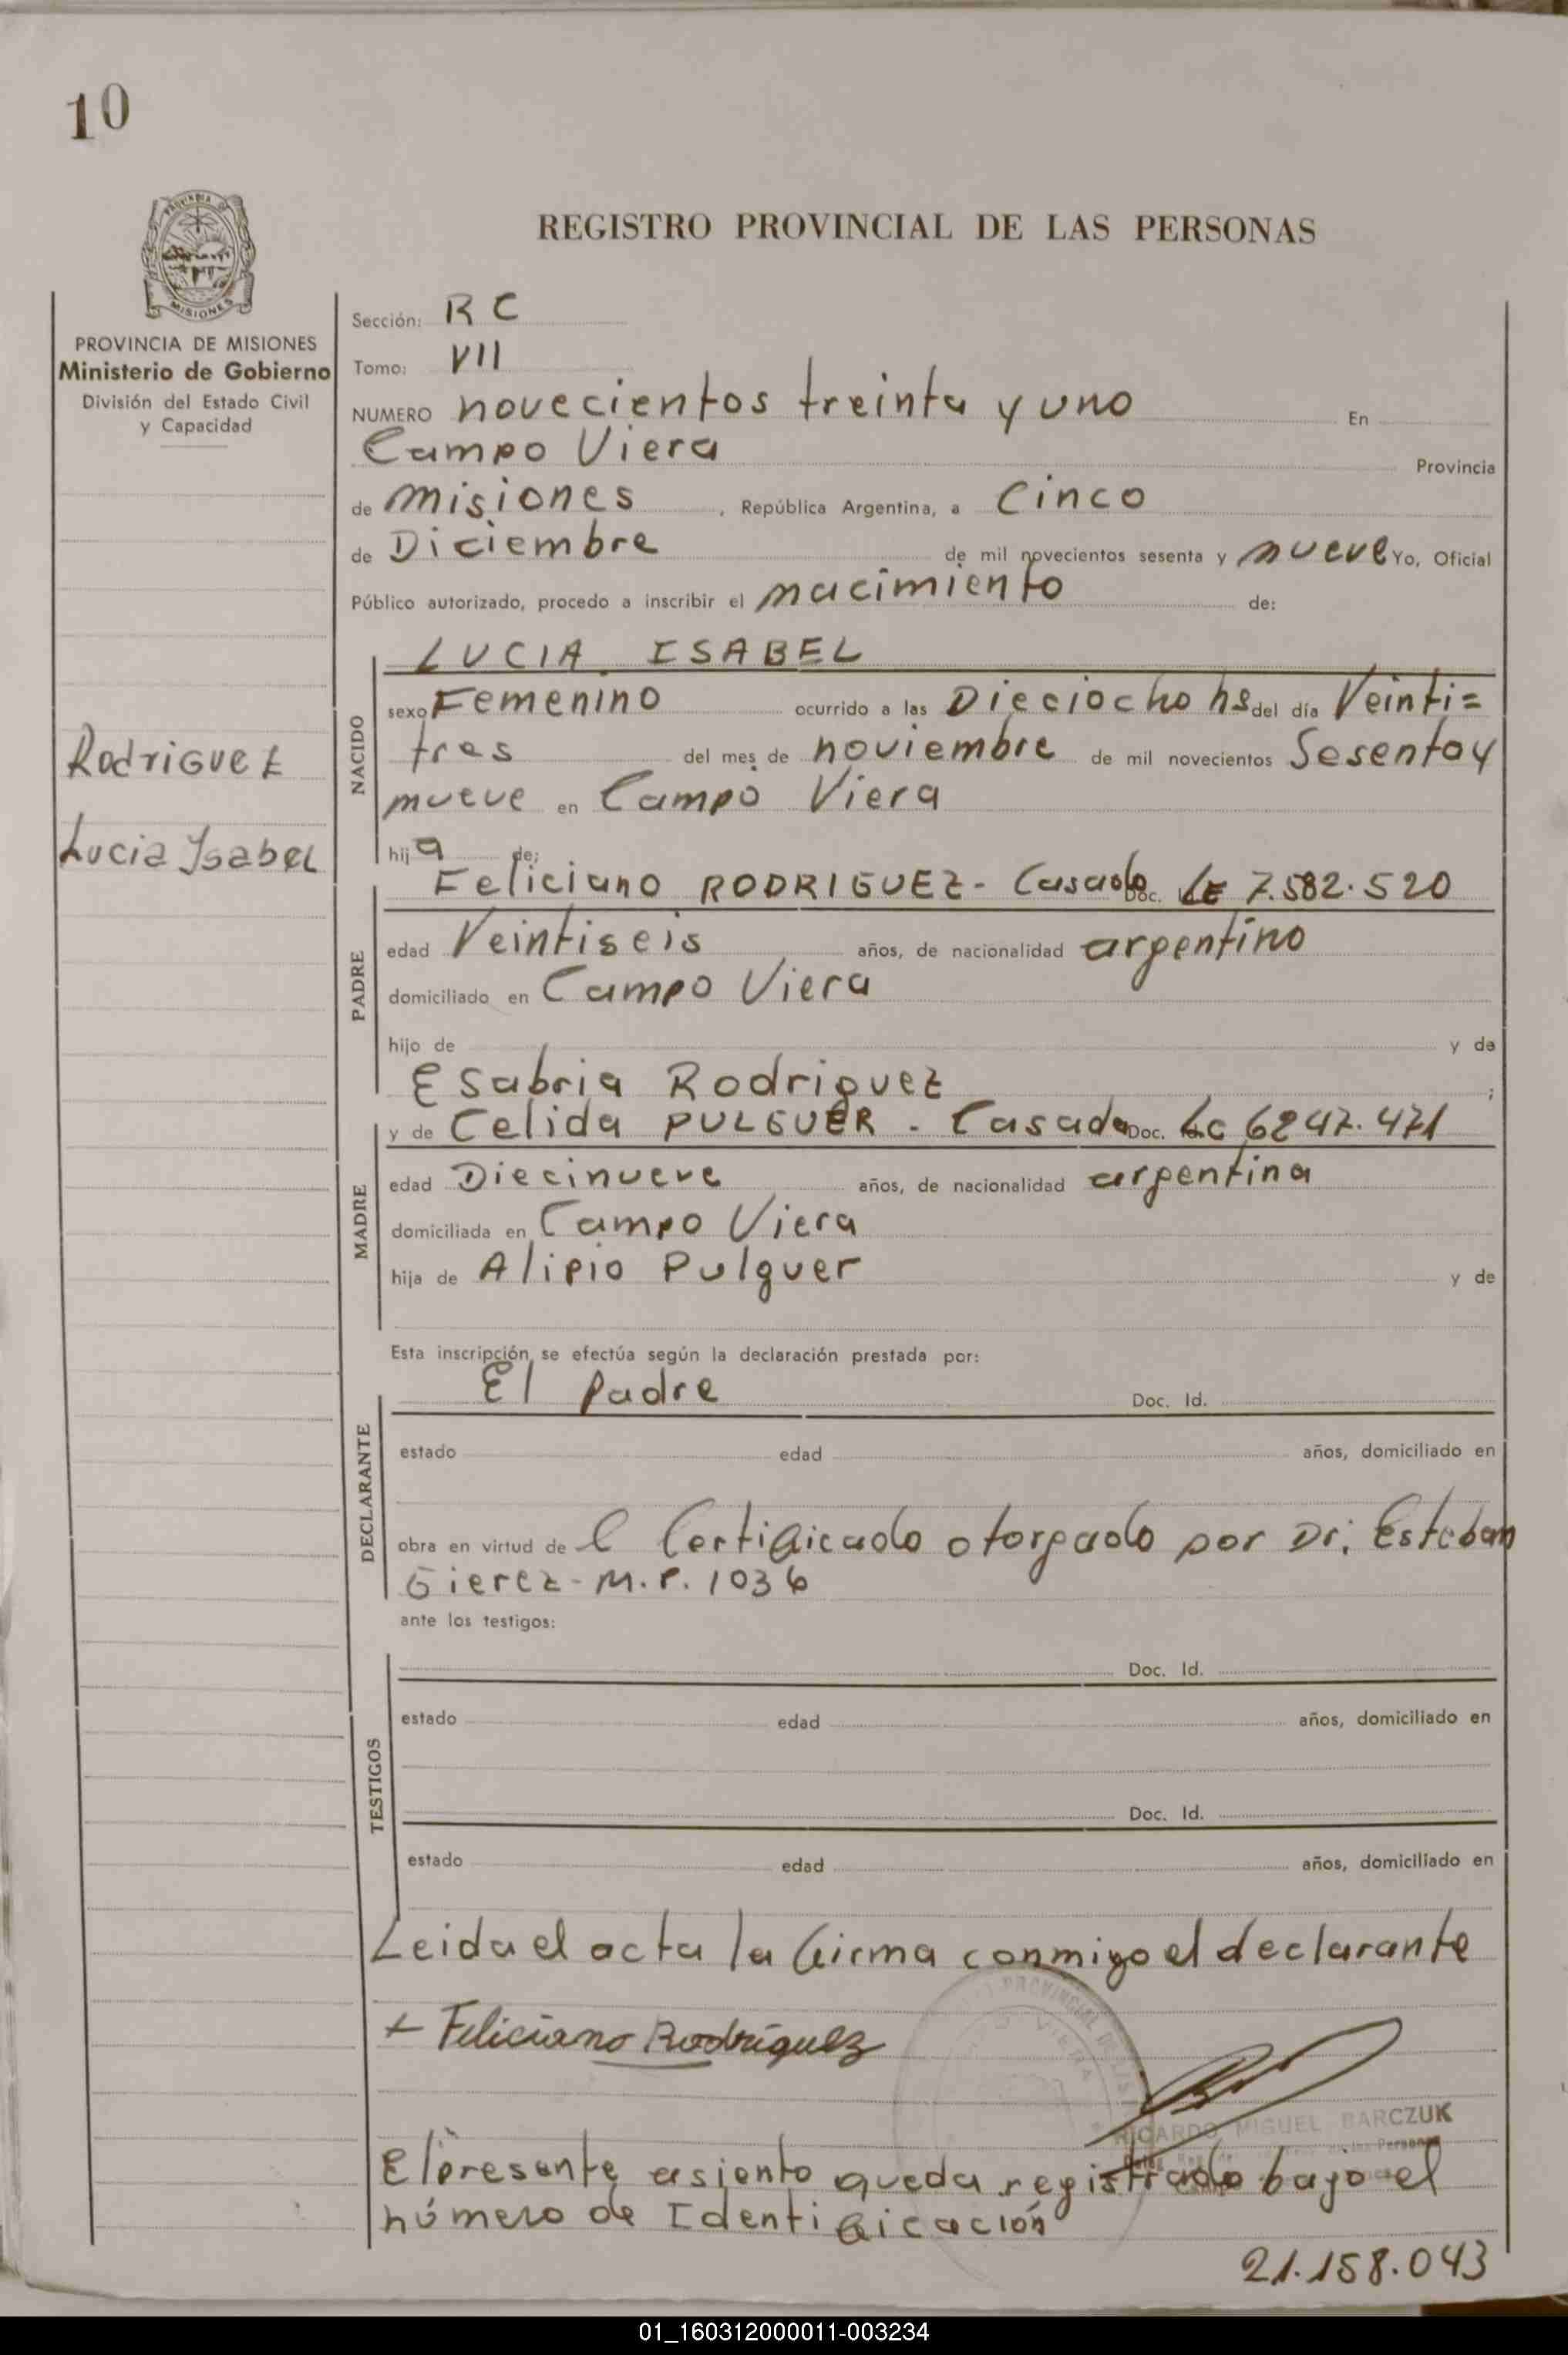 10
REGISTRO PROVINCIAL DE LAS PERSONAS
MISIONES
PROVINCIA DE MISIONES
Ministerio de Gobierno
División del Estado Civil
y Capacidad
Rodriguez
Lucia Ysabel
Sección: R C
Tomo: VII
NUMERO novecientos treinta y uno En
Campo Viera Provincia
de Misiones, República Argentina, a Cinco
de Diciembre de mil novecientos sesenta y nueve Yo, Oficial
Público autorizado, procedo a inscribir el nacimiento de:
NACIDO
LUCIA ISABEL
sexo Femenino ocurrido a las Dieciocho hs del día Veinti=
tres del mes de noviembre de mil novecientos Sesenta y
nueve en Campo Viera
hija de:
PADRE
Feliciano RODRIGUEZ - Casado Doc. LE 7.582.520
edad Veintiseis años, de nacionalidad argentino
domiciliado en Campo Viera
hijo de y de
Esabria Rodriguez ;
MADRE
y de Celida PULGUER - Casada Doc. Lc 6247.471
edad Diecinueve años, de nacionalidad argentina
domiciliada en Campo Viera
hija de Alipio Pulguer y de
Esta inscripción se efectúa según la declaración prestada por:
DECLARANTE
El Padre Doc. Id.
estado edad años, domiciliado en
obra en virtud de l Certificado otorgado por Dr. Esteban
Gierez - M.P. 1036
ante los testigos:
TESTIGOS
Doc. Id.
estado edad años, domiciliado en
Doc. Id.
estado edad años, domiciliado en
Leida el acta la firma conmigo el declarante
+ Feliciano Rodríguez
RICARDO MIGUEL BARCZUK
El presente asiento queda registrado bajo el
número de Identificación
21.158.043
01_160312000011-003234